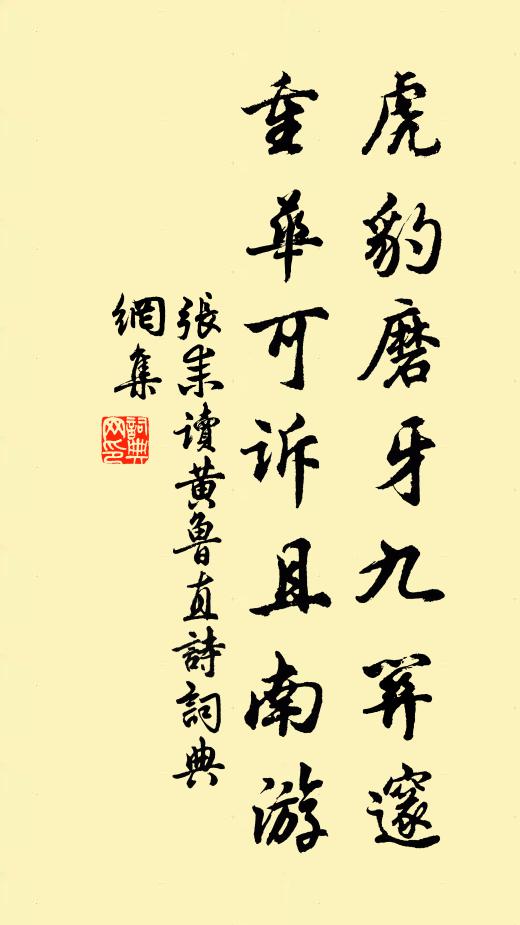 虎豹磨牙九關邃
重華可訴且南游
張耒讀黄魯直詩詞典
網集
詞典
网印